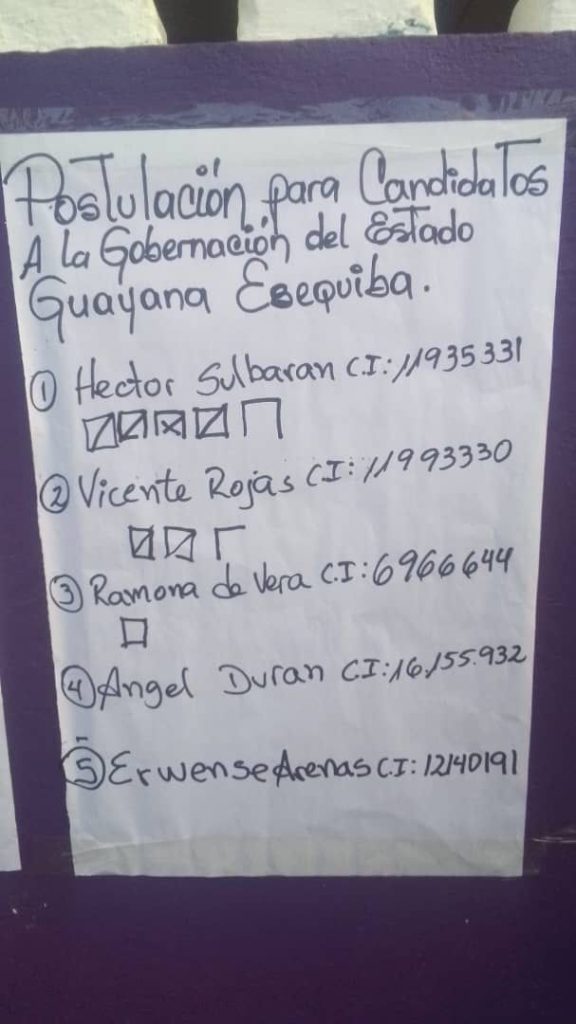 Postulación para Candidatos
A la Gobernación del Estado
Guayana Esequiba.
① Hector Sulbaran C.I: 11935331
② Vicente Rojas C.I: 11993330
③ Ramona de Vera C.I: 6966644
④ Angel Duran C.I: 16,155.932
⑤ Erwense Arenas C.I: 12140191